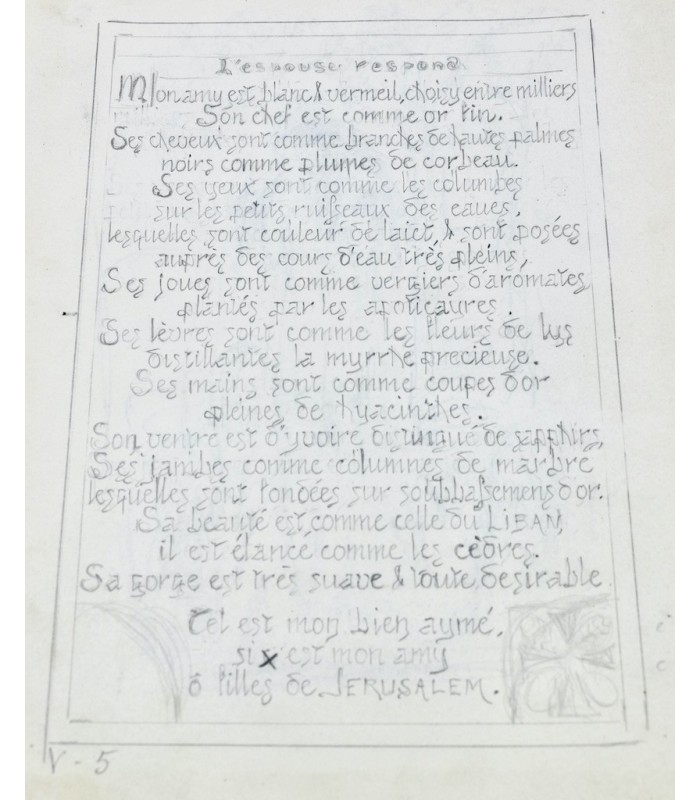 L'espouse respond
Mon amy est blanc & vermeil, choisy entre milliers
Son chef est comme or fin.
Ses cheveux sont comme branches de hautes palmes
noirs comme plumes de corbeau.
Ses yeux sont comme les columbes
sur les petits ruisseaux des eaues,
lesquelles sont couleur de laict, & sont posées
auprès des cours d'eau très pleins,
Ses joues sont comme vergiers d'aromates,
plantés par les apoticayres.
Ses lèvres sont comme les fleurs de lys
distillantes la myrrhe precieuse.
Ses mains sont comme coupes d'or
pleines de hyacinthes.
Son ventre est d'yvoire distingué de sapphirs,
Ses jambes comme columnes de marbre
lesquelles sont fondées sur soubbassemens d'or.
Sa beauté est comme celle du LIBAN,
il est élancé comme les cèdres.
Sa gorge est très suave & toute desirable
Tel est mon bien aymé,
si x est mon amy
ô filles de JERUSALEM.
V - 5